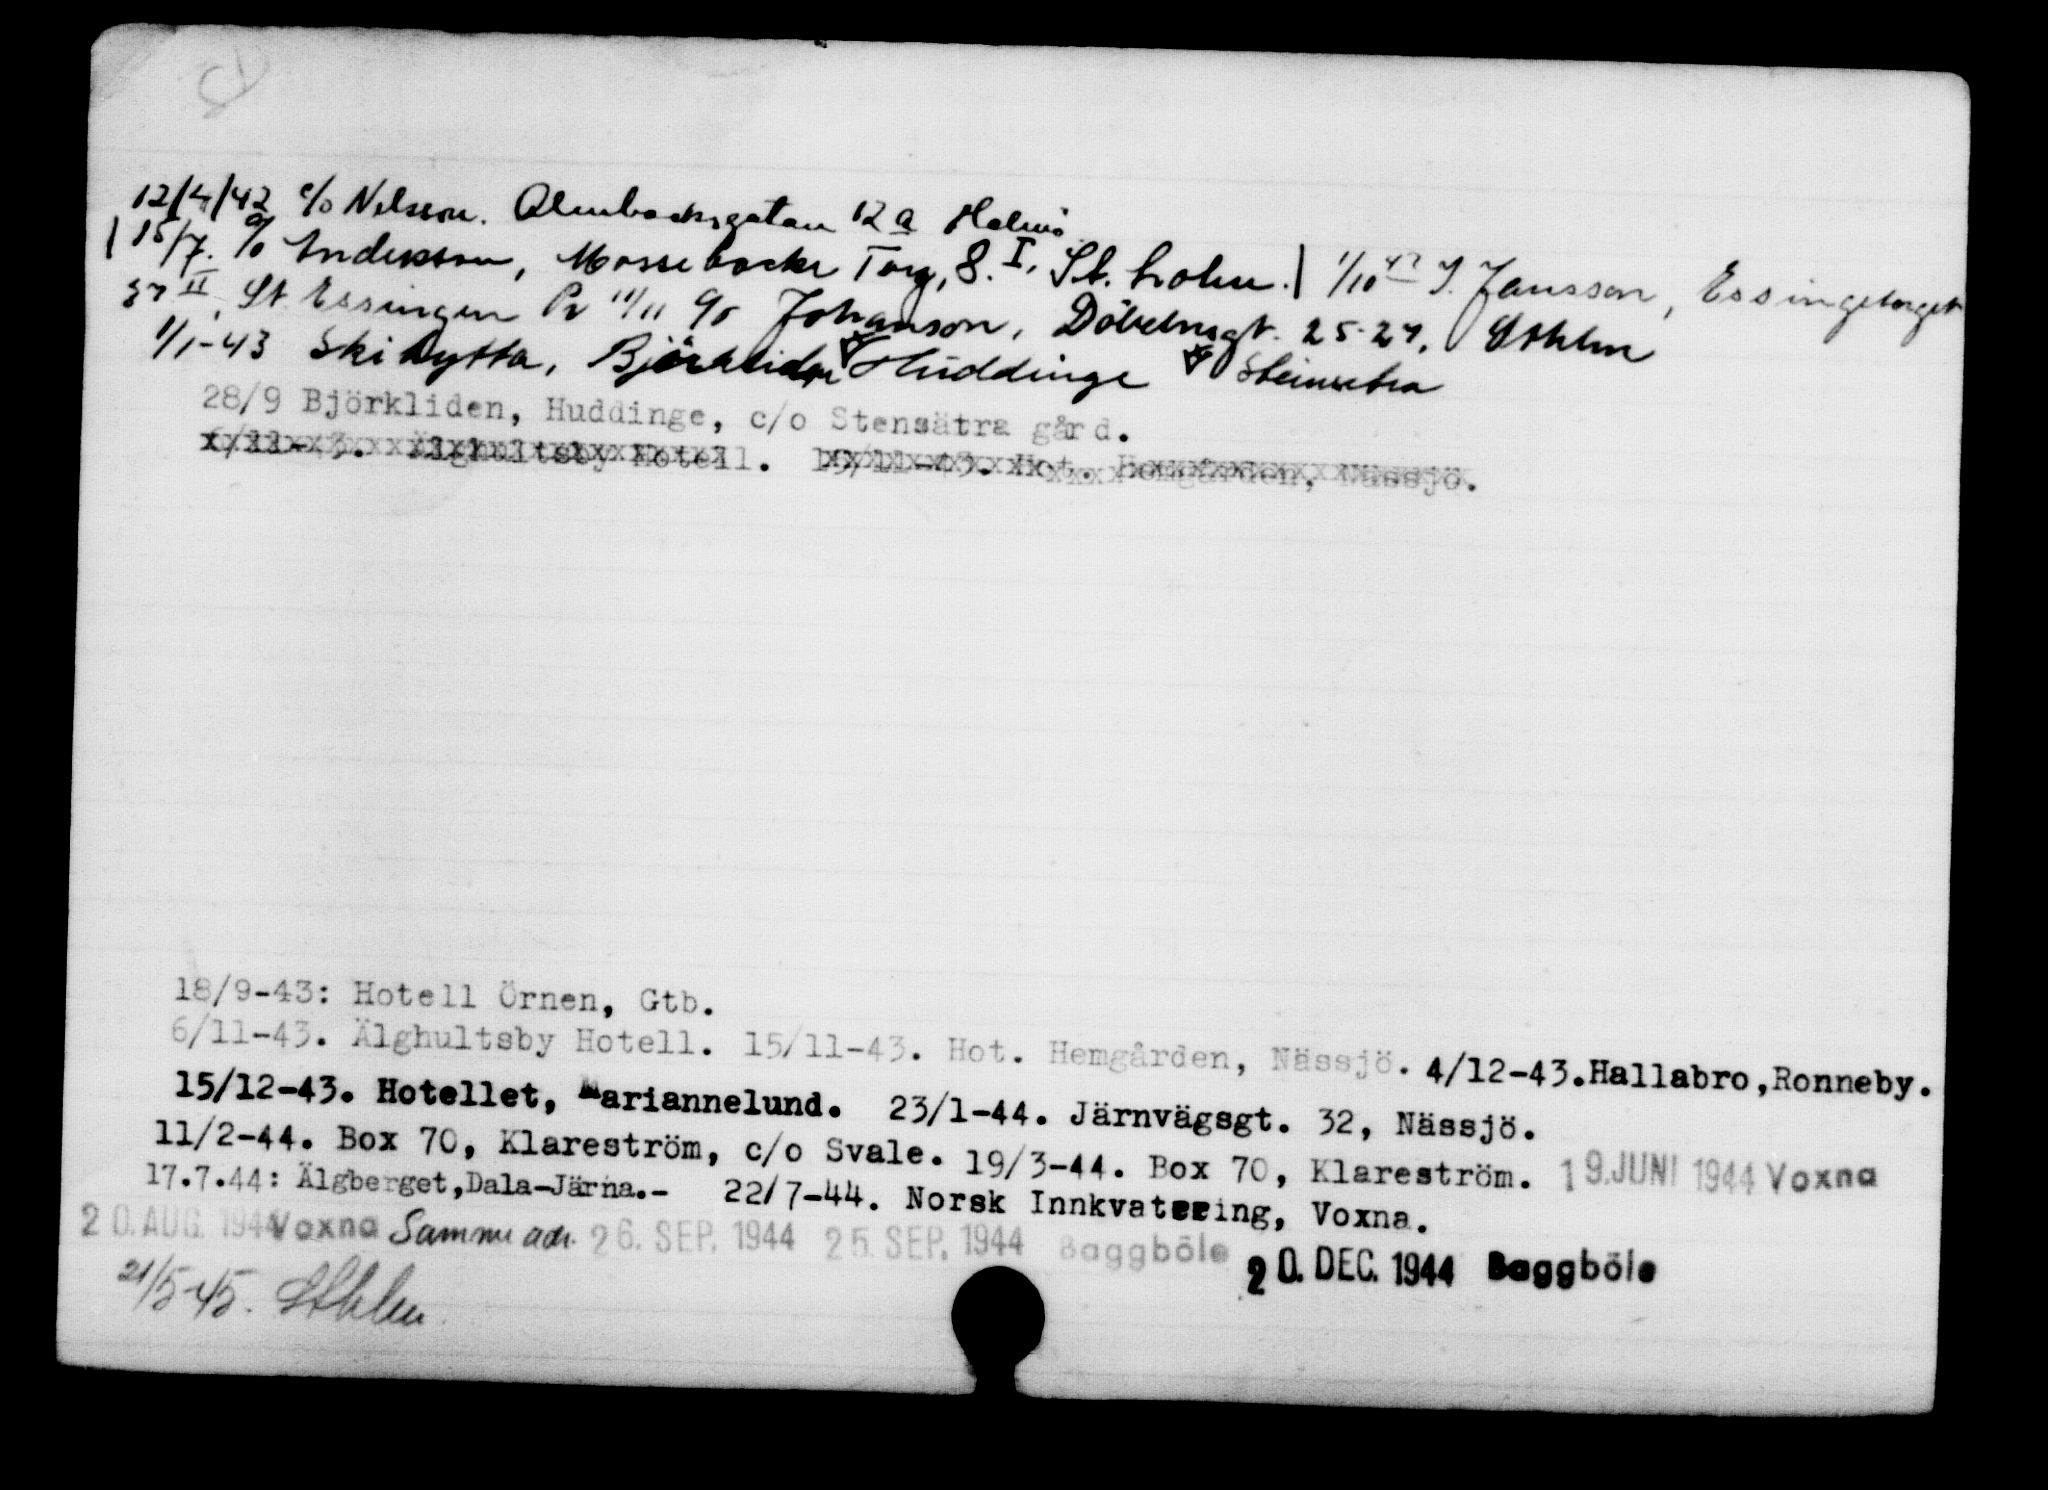 12/4/42 c/o Nilsson. Almbacksgatan 12 a Malmö
| 15/7. c/o Anderson, Mossebacke Torg, 8. I, St.holm. | 1/10 42 J. Jansson, Essingetorget
37 II, St Essingen Pr 11/11 c/o Johanson, Döbelnsgt. 25-27, Sthlm
1/1-43 Skihytta, Björkliden Huddinge Steinsetra
28/9 Björkliden, Huddinge, c/o Stensätra gård.
6/11-43. Älghultsby Hotell. 15/11-43. Hot. Hemgården, Nässjö.
18/9-43: Hotell Örnen, Gtb.
6/11-43. Älghultsby Hotell. 15/11-43. Hot. Hemgården, Nässjö. 4/12-43.Hallabro,Ronneby.
15/12-43. Hotellet, Mariannelund. 23/1-44. Järnvägsgt. 32, Nässjö.
11/2-44. Box 70, Klareström, c/o Svale. 19/3-44. Box 70, Klareström. 19.JUNI 1944 Voxna
17.7.44: Älgberget,Dala-Järna.- 22/7-44. Norsk Innkvatering, Voxna.
20.AUG. 1944 Voxna Samme adr. 26. SEP. 1944 25. SEP. 1944 Baggböle 20. DEC. 1944 Baggböle
21/5-45. Sthlm.